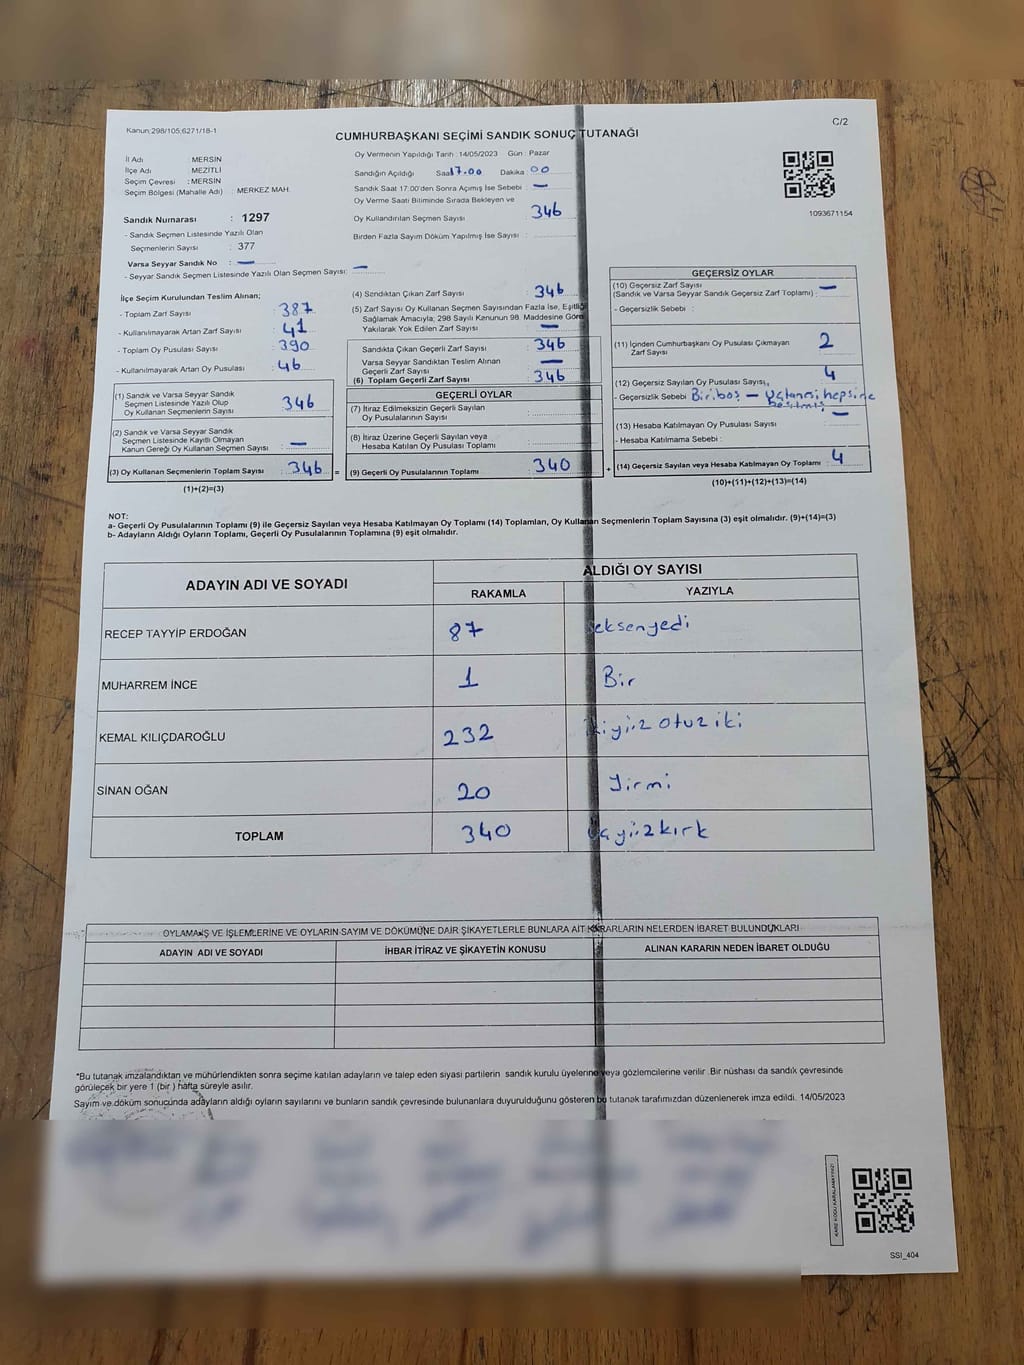 Kanun:298/105;6271/18-1
C/2
CUMHURBAŞKANI SEÇİMİ SANDIK SONUÇ TUTANAĞI
İl Adı : MERSİN
İlçe Adı : MEZİTLİ
Seçim Çevresi : MERSİN
Seçim Bölgesi (Mahalle Adı) : MERKEZ MAH.
Sandık Numarası : 1297
- Sandık Seçmen Listesinde Yazılı Olan
Seçmenlerin Sayısı : 377
Varsa Seyyar Sandık No : —
- Seyyar Sandık Seçmen Listesinde Yazılı Olan Seçmen Sayısı: —
Oy Vermenin Yapıldığı Tarih :14/05/2023 Gün : Pazar
Sandığın Açıldığı Saat 17.00 Dakika : 00
Sandık Saat 17:00'den Sonra Açılmış İse Sebebi : —
Oy Verme Saati Bitiminde Sırada Bekleyen ve
Oy Kullandırılan Seçmen Sayısı 346
Birden Fazla Sayım Döküm Yapılmış İse Sayısı :
1093671154
İlçe Seçim Kurulundan Teslim Alınan;
- Toplam Zarf Sayısı : 387
- Kullanılmayarak Artan Zarf Sayısı : 41
- Toplam Oy Pusulası Sayısı : 390
- Kullanılmayarak Artan Oy Pusulası : 46
(1) Sandık ve Varsa Seyyar Sandık
Seçmen Listesinde Yazılı Olup
Oy Kullanan Seçmenlerin Sayısı : 346
(2) Sandık ve Varsa Seyyar Sandık
Seçmen Listesinde Kayıtlı Olmayan
Kanun Gereği Oy Kullanan Seçmen Sayısı : —
(3) Oy Kullanan Seçmenlerin Toplam Sayısı : 346 =
(1)+(2)=(3)
(4) Sandıktan Çıkan Zarf Sayısı : 346
(5) Zarf Sayısı Oy Kullanan Seçmen Sayısından Fazla İse, Eşitliği
Sağlamak Amacıyla; 298 Sayılı Kanunun 98. Maddesine Göre
Yakılarak Yok Edilen Zarf Sayısı : —
Sandıkta Çıkan Geçerli Zarf Sayısı : 346
Varsa Seyyar Sandıktan Teslim Alınan
Geçerli Zarf Sayısı : —
(6) Toplam Geçerli Zarf Sayısı : 346
GEÇERLİ OYLAR
(7) İtiraz Edilmeksizin Geçerli Sayılan
Oy Pusulalarının Sayısı :
(8) İtiraz Üzerine Geçerli Sayılan veya
Hesaba Katılan Oy Pusulası Toplamı :
(9) Geçerli Oy Pusulalarının Toplamı : 340 +
GEÇERSİZ OYLAR
(10) Geçersiz Zarf Sayısı
(Sandık ve Varsa Seyyar Sandık Geçersiz Zarf Toplamı) : —
- Geçersizlik Sebebi :
(11) İçinden Cumhurbaşkanı Oy Pusulası Çıkmayan
Zarf Sayısı 2
(12) Geçersiz Sayılan Oy Pusulası Sayısı, 4
- Geçersizlik Sebebi Biri boş — hepsine
(13) Hesaba Katılmayan Oy Pusulası Sayısı : —
- Hesaba Katılmama Sebebi :
(14) Geçersiz Sayılan veya Hesaba Katılmayan Oy Toplamı : 4
(10)+(11)+(12)+(13)=(14)
NOT:
a- Geçerli Oy Pusulalarının Toplamı (9) ile Geçersiz Sayılan veya Hesaba Katılmayan Oy Toplamı (14) Toplamları, Oy Kullanan Seçmenlerin Toplam Sayısına (3) eşit olmalıdır. (9)+(14)=(3)
b- Adayların Aldığı Oyların Toplamı, Geçerli Oy Pusulalarının Toplamına (9) eşit olmalıdır.
ADAYIN ADI VE SOYADI ALDIĞI OY SAYISI
RAKAMLA YAZIYLA
RECEP TAYYİP ERDOĞAN 87 Seksenyedi
MUHARREM İNCE 1 Bir
KEMAL KILIÇDAROĞLU 232 ikiyüz otuz iki
SİNAN OĞAN 20 Yirmi
TOPLAM 340 üçyüzkırk
OYLAMA İŞ VE İŞLEMLERİNE VE OYLARIN SAYIM VE DÖKÜMÜNE DAİR ŞİKAYETLERLE BUNLARA AİT KARARLARIN NELERDEN İBARET BULUNDUKLARI
ADAYIN ADI VE SOYADI İHBAR İTİRAZ VE ŞİKAYETİN KONUSU ALINAN KARARIN NEDEN İBARET OLDUĞU
*Bu tutanak imzalandıktan ve mühürlendikten sonra seçime katılan adayların ve talep eden siyasi partilerin sandık kurulu üyelerine veya gözlemcilerine verilir .Bir nüshası da sandık çevresinde
görülecek bir yere 1 (bir ) hafta süreyle asılır.
Sayım ve döküm sonucunda adayların aldığı oyların sayılarını ve bunların sandık çevresinde bulunanlara duyurulduğunu gösteren bu tutanak tarafımızdan düzenlenerek imza edildi. 14/05/2023
KARE KODU KARALAMAYINIZ!
SSI_404